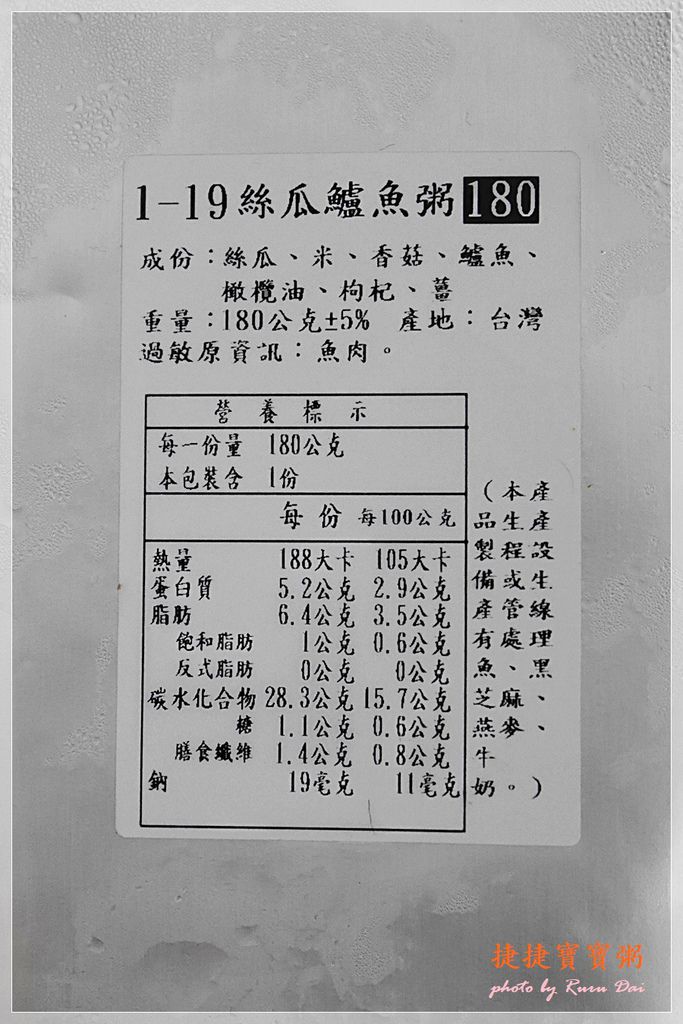 1-19絲瓜鱸魚粥180
成份：絲瓜、米、香菇、鱸魚、
橄欖油、枸杞、薑
重量：180公克±5%　產地：台灣
過敏原資訊：魚肉。
營養標示
每一份量　180公克
本包裝含　1份
每份　每100公克
熱量　188大卡　105大卡
蛋白質　5.2公克　2.9公克
脂肪　6.4公克　3.5公克
飽和脂肪　1公克　0.6公克
反式脂肪　0公克　0公克
碳水化合物　28.3公克　15.7公克
糖　1.1公克　0.6公克
膳食纖維　1.4公克　0.8公克
鈉　19毫克　11毫克
（本產
品生產
製程設
備或生
產管線
有處理
魚、黑
芝麻、
燕麥、
牛
奶。）
捷捷寶寶粥
photo by Ruru Dai